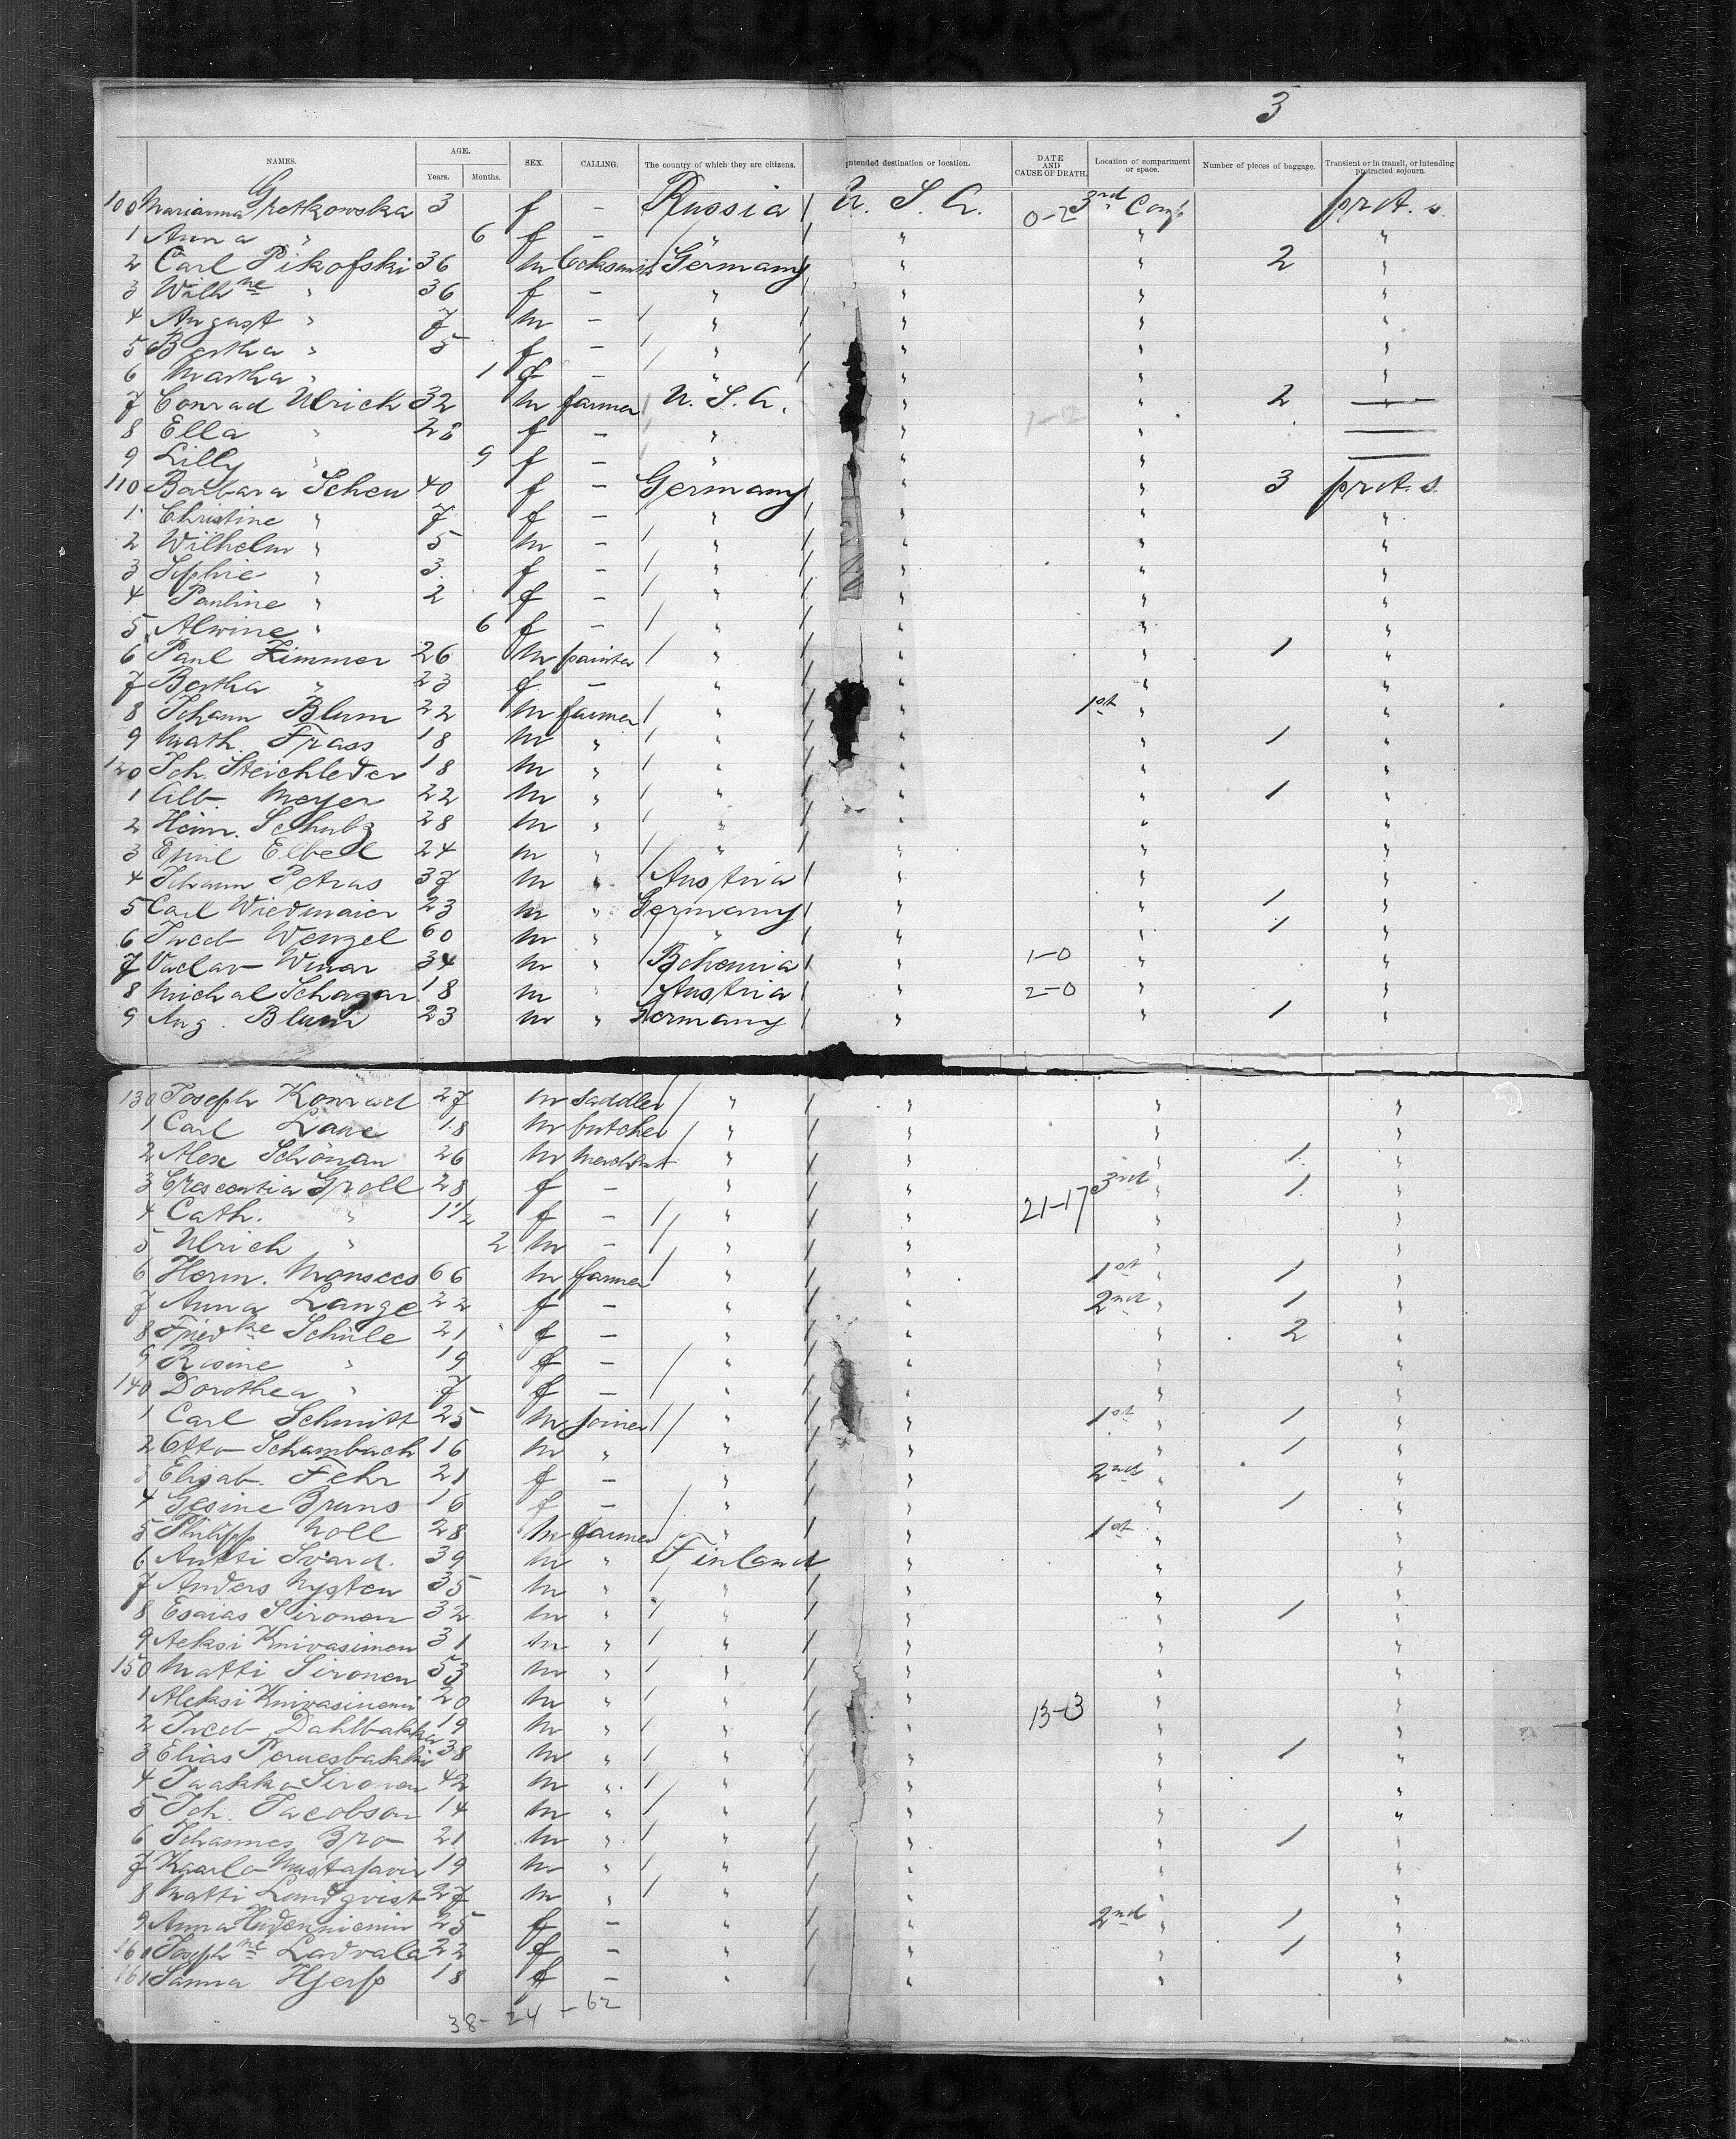 3
NAMES. AGE. Years. Months. SEX. CALLING. The country of which they are citizens. Intended destination or location. DATE AND CAUSE OF DEATH. Location of compartment or space. Number of pieces of baggage. Transient or in transit, or intending protracted sojourn.
100 Marianna Gretkowska 3 f – Russia U. S. A. 0-2 3rd Comp prot. s.
1 Anna " 6 f – " " " "
2 Carl Pikofski 36 m Germany " " 2 "
3 Wilhne " 36 f – " " " "
4 August " 7 m – " " " "
5 Bertha " 5 f – " " " "
6 Martha " 1 f – " " " "
7 Conrad Ulrich 32 m farmer U. S. A. " " 2 —
8 Ella " 28 f – " " 1-12 " —
9 Lilly " 9 f – " " " —
110 Barbara Scheu 40 f – Germany " " 3 prot. s.
1 Christine " 7 f – " " " "
2 Wilhelm " 5 m – " " " "
3 Sophie " 3 f – " " " "
4 Pauline " 2 f – " " " "
5 Alwine " 6 f – " " " "
6 Paul Zimmer 26 m painter " " " 1 "
7 Bertha " 23 f – " " " "
8 Johann Blum 22 m farmer " " 1st " "
9 Math. Frass 18 m " " " " 1 "
120 Joh. Steichleder 18 m " " " " "
1 Alb. Meyer 22 m " " " " 1 "
2 Heinr. Schulz 28 m " " " " "
3 Emil Elbel 24 m " " " " "
4 Johann Petras 37 m " Austria " " "
5 Carl Wiedmaier 23 m " Germany " " 1 "
6 Jacob Wenzel 60 m " " " " 1 "
7 Vaclav Winar 34 m " Bohemia " 1-0 " "
8 Michal Schagar 18 m " Austria " 2-0 " "
9 Aug. Blum 23 m " Germany " " 1 "
130 Joseph Konrad 27 m saddler " " " "
1 Carl Laue 18 m butcher " " " "
2 Alex Schönau 26 m merchant " " " 1 "
3 Crescentia Groll 28 f – " " 3rd " 1 "
4 Cath. " 1½ f – " " 21-17 " "
5 Ulrich " 2 m – " " " "
6 Herm. Monsees 66 m farmer " " 1st " 1 "
7 Anna Lange 22 f – " " 2nd " 1 "
8 Friedke Schüle 21 f – " " " 2 "
9 Rosine " 19 f – " " " "
140 Dorothea " 7 f – " " " "
1 Carl Schmitt 25 m joiner " " 1st " 1 "
2 Otto Schambach 16 m " " " " 1 "
3 Elisab. Fehr 21 f – " " 2nd " "
4 Gesine Bruns 16 f – " " " 1 "
5 Philipp Noll 28 m farmer " " 1st " "
6 Antti Svard. 39 m " Finland " " "
7 Anders Nysten 35 m " " " " "
8 Esaias Sironen 32 m " " " " 1 "
9 Aeksi Knivasimen 31 m " " " " "
150 Matti Sironen 53 m " " " " "
1 Aleksi 20 m " " " 13-3 " "
2 Jacob Dahlbakka 19 m " " " " "
3 Elias 38 m " " " " 1 "
4 Jaakko Sironen 42 m " " " " "
5 Joh. Jacobson 14 m " " " " "
6 Johannes Bro 21 m " " " " 1 "
7 Kaarlo Mustajavir 19 m " " " " "
8 Matti Lundqvist 27 m " " " " "
9 Anna 25 f – " " 2nd " 1 "
160 Josephne Ladvala 22 f – " " " 1 "
161 Sanna Hjerp 18 f – " " " "
38 - 24 - 62